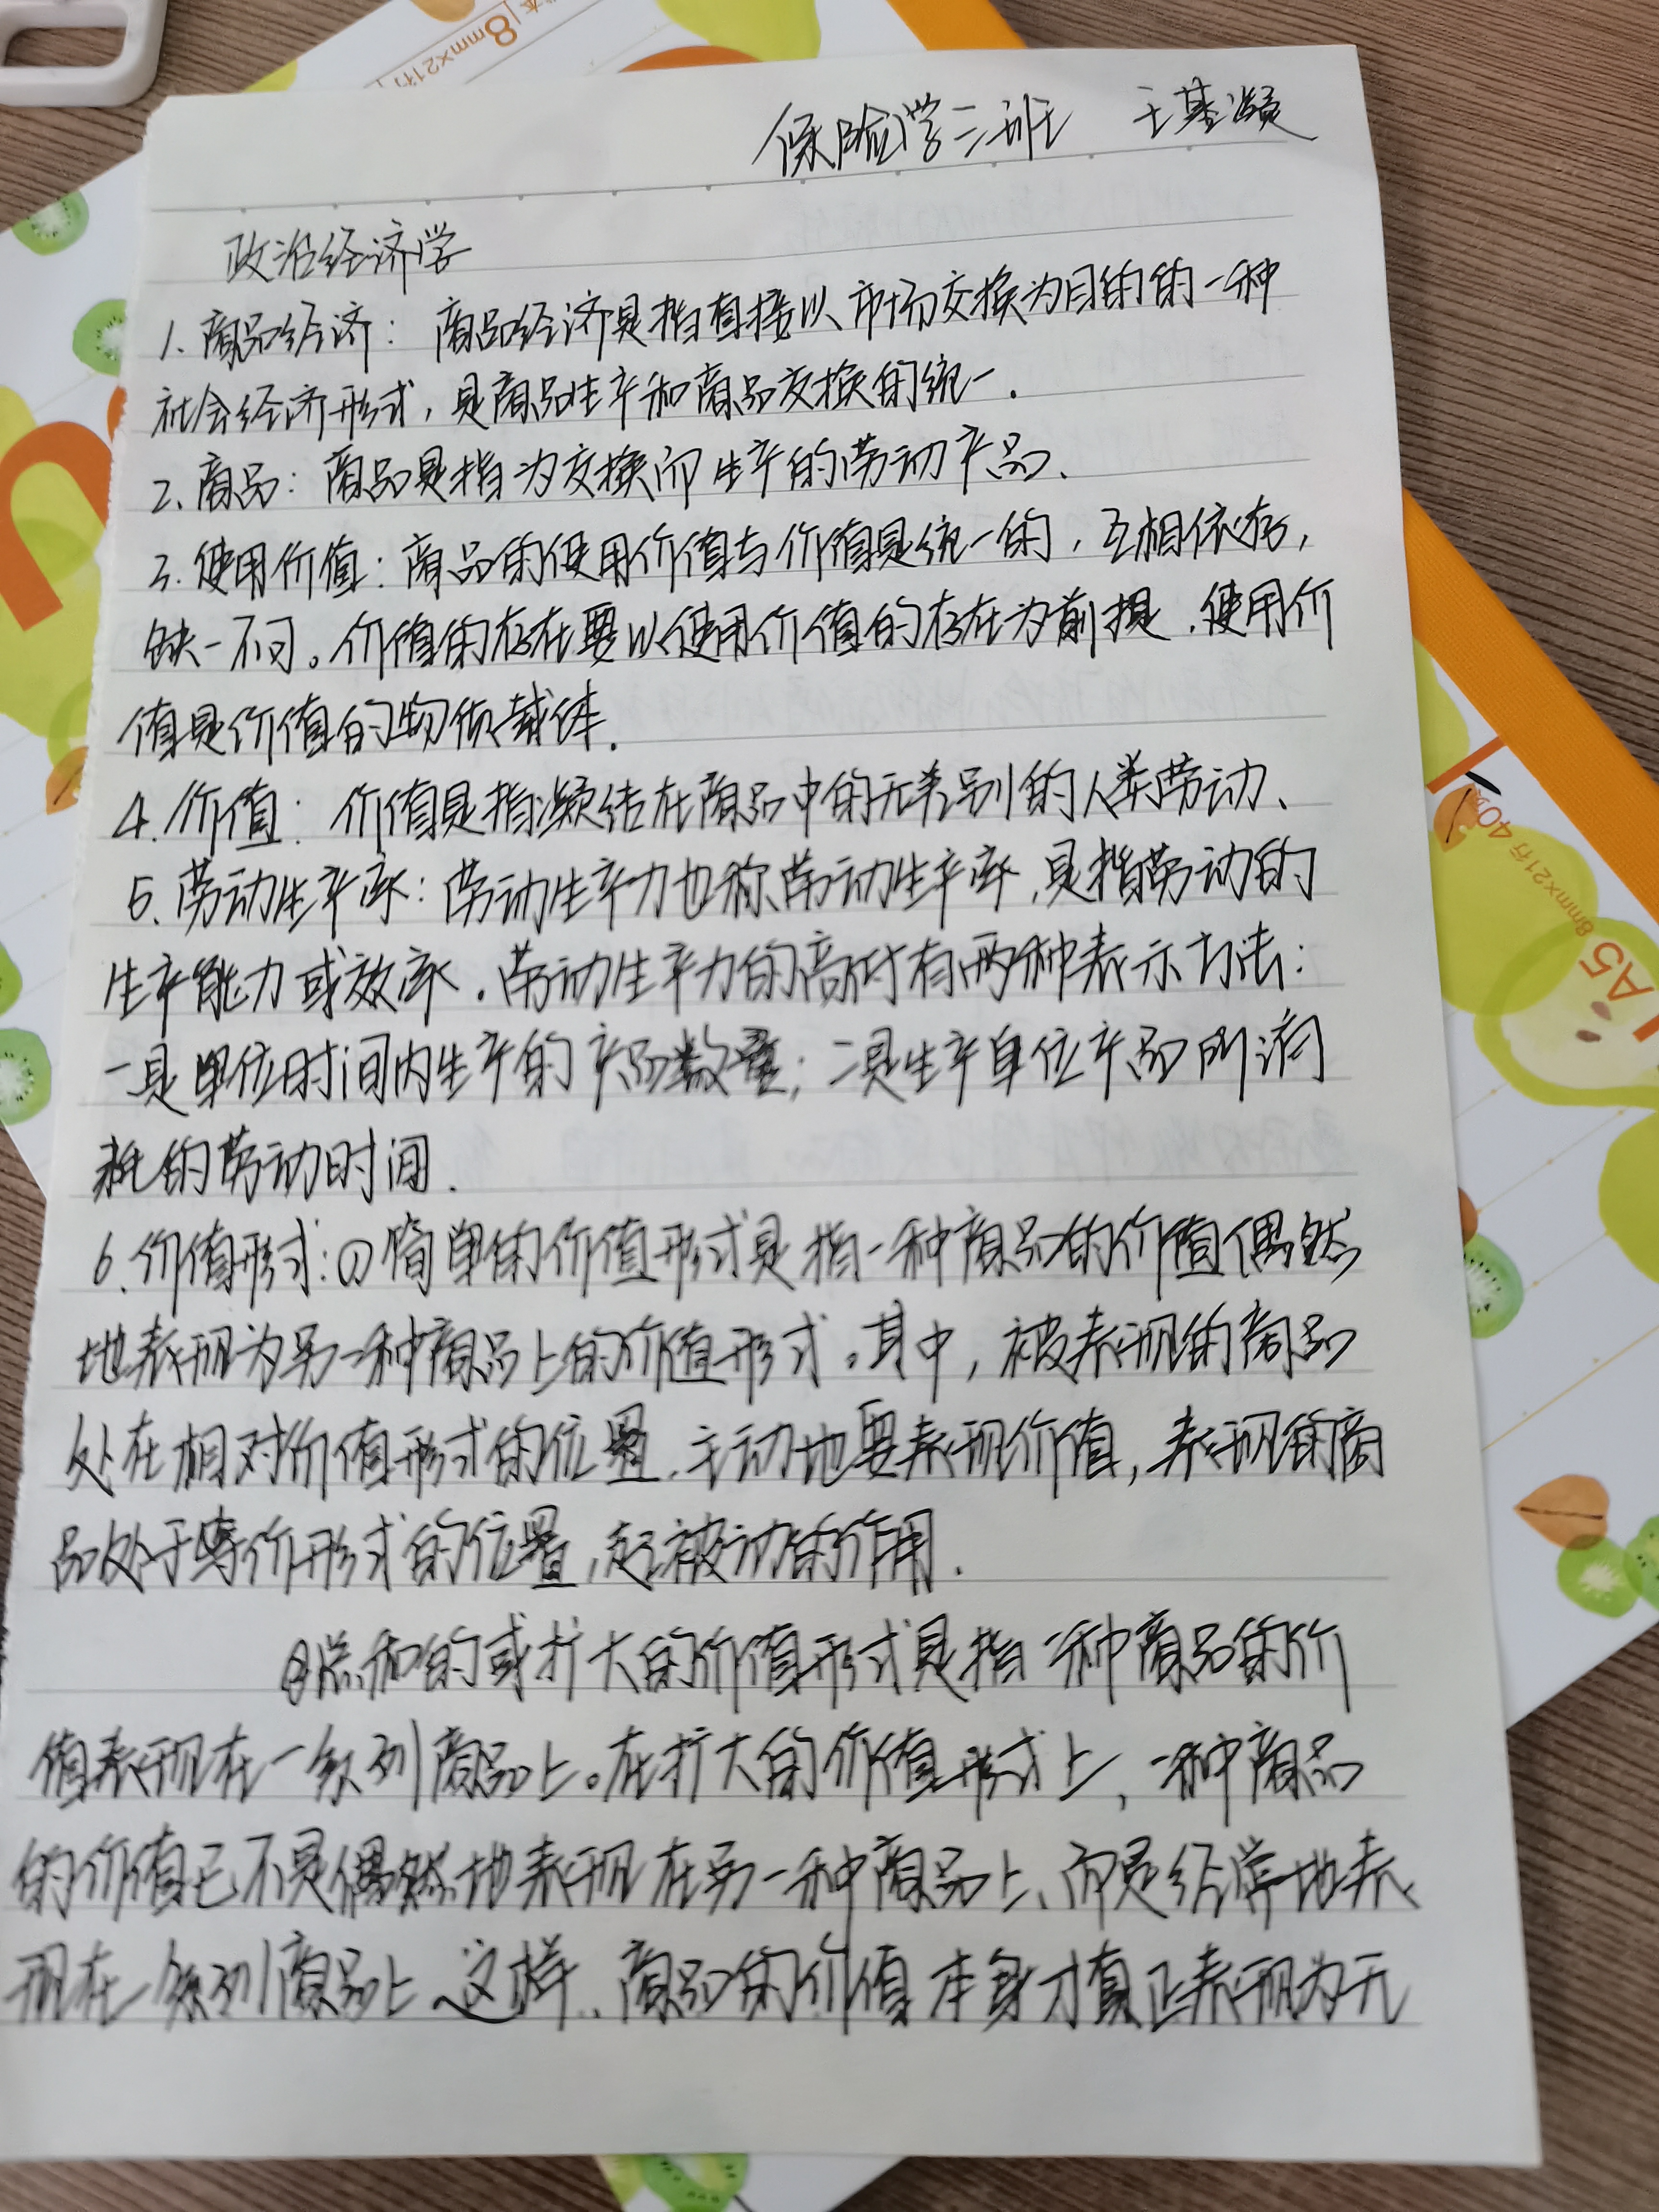 8mm×21行
保险学三班 王基灏
政治经济学
1. 商品经济：商品经济是指直接以市场交换为目的的一种
社会经济形式，是商品生产和商品交换的统一.
2. 商品：商品是指为交换而生产的劳动产品、
3. 使用价值：商品的使用价值与价值是统一的，互相依存，
缺一不可。价值的存在要以使用价值的存在为前提.使用价
值是价值的物质载体.
4. 价值：价值是指凝结在商品中的无差别的人类劳动、
5. 劳动生产率：劳动生产力也称劳动生产率,是指劳动的
生产能力或效率.劳动生产力的高低有两种表示方法：
一是单位时间内生产的产品数量；二是生产单位产品所消
耗的劳动时间.
6. 价值形式：①简单的价值形式是指一种商品的价值偶然
地表现为另一种商品上的价值形式。其中，被表现的商品
处在相对价值形式的位置.主动地要表现价值，表现的商
品处于等价形式的位置,起被动的作用.
②总和的或扩大的价值形式是指一种商品的价
值表现在一系列商品上。在扩大的价值形式上，一种商品
的价值已不是偶然地表现在另一种商品上、而是经常地表
现在一系列商品上.这样、商品的价值本身才真正表现为无
A5 8mm×21行 40